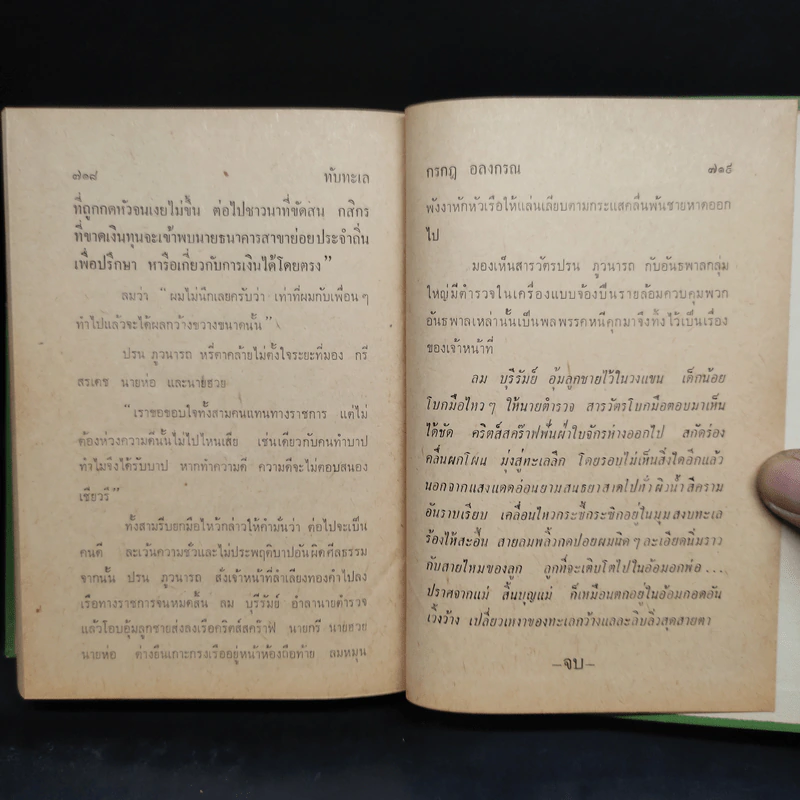 ๗๑๘ ทับทะเล
ที่ถูกกดหัวจนเงยไม่ขึ้น ต่อไปชาวนาที่ขัดสน กสิกร
ที่ขาดเงินทุนจะเข้าพบนายธนาคารสาขาย่อยประจำถิ่น
เพื่อปรึกษา หารือเกี่ยวกับการเงินได้โดยตรง”
ลมว่า “ ผมไม่นึกเลยครับว่า เท่าที่ผมกับเพื่อน ๆ
ทำไปแล้วจะได้ผลกว้างขวางขนาดนั้น ”
ปรน ภูวนารถ หรี่ตาคล้ายไม่ตั้งใจระยะที่มอง กรี
สรเดช นายห่อ และนายฮวย
“เราขอขอบใจทั้งสามคนแทนทางราชการ แต่ไม่
ต้องห่วงความดีนั้นไม่ไปไหนเสีย เช่นเดียวกับคนทำบาป
ทำไมจึงได้รับบาป หากทำความดี ความดีจะไม่ตอบสนอง
เชียวรึ ”
ทั้งสามรีบยกมือไหว้กล่าวให้คำมั่นว่า ต่อไปจะเป็น
คนดี ละเว้นความชั่วและไม่ประพฤติบาปอันผิดศีลธรรม
จากนั้น ปรน ภูวนารถ สั่งเจ้าหน้าที่ลำเลียงทองคำไปลง
เรือทางราชการจนหมดสิ้น ลม บุรีรัมย์ อำลานายตำรวจ
แล้วโอบอุ้มลูกชายส่งลงเรือคริตส์สคร๊าฟ นายกรี นายฮวย
นายห่อ ต่างยืนเกาะกรงเรืออยู่หน้าห้องถือท้าย ลมหมุน
กรกฎ อลงกรณ ๗๑๙
พังงาหักหัวเรือให้แล่นเลียบตามกระแสคลื่นพ้นชายหาดออก
ไป
มองเห็นสารวัตรปรน ภูวนารถ กับอันธพาลกลุ่ม
ใหญ่มีตำรวจในเครื่องแบบจ้องปืนรายล้อมควบคุมพวก
อันธพาลเหล่านั้นเป็นพลพรรคหนีคุกมาจึงทิ้งไว้เป็นเรื่อง
ของเจ้าหน้าที่
ลม บุรีรัมย์ อุ้มลูกชายไว้ในวงแขน เด็กน้อย
โบกมือไหว ๆ ให้นายตำรวจ สารวัตรโบกมือตอบมาเห็น
ได้ชัด คริตส์สคร๊าฟพื้นฝ่าใบจักรห่างออกไป สกัดร่อง
คลื่นผกโผน มุ่งสู่ทะเลลึก โดยรอบไม่เห็นสิ่งใดอีกแล้ว
นอกจากแสงแดดอ่อนยามสนธยาสาดไปทั่วผิวน้ำสีคราม
อันราบเรียบ เคลื่อนไหวกระซี้กระซิกอยู่ในมุมสงบทะเล
ร้องไห้สะอื้น สายลมพลิ้วกดปอยผมนิด ๆ ละเอียดนิ่มราว
กับสายไหมของลูก ลูกที่จะเติบโตไปในอ้อมอกพ่อ . . .
ปราศจากแม่ สิ้นบุญแม่ ก็เหมือนตกอยู่ในอ้อมกอดอัน
เวิ้งว้าง เปลี่ยวเหงาของทะเลกว้างแลละลิบลิ่วสุดสายตา
—จบ—